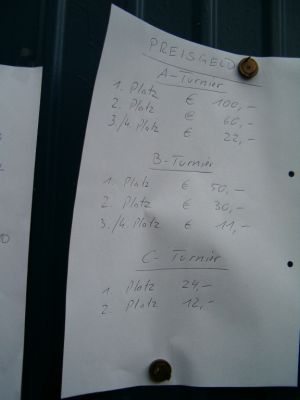 PREISGELD
A-Turnier
1. Platz € 100,-
2. Platz € 60,-
3./4. Platz € 22,-
B-Turnier
1. Platz € 50,-
2. Platz € 30,-
3./4. Platz € 11,-
C-Turnier
1 Platz 24,-
2. Platz 12,-